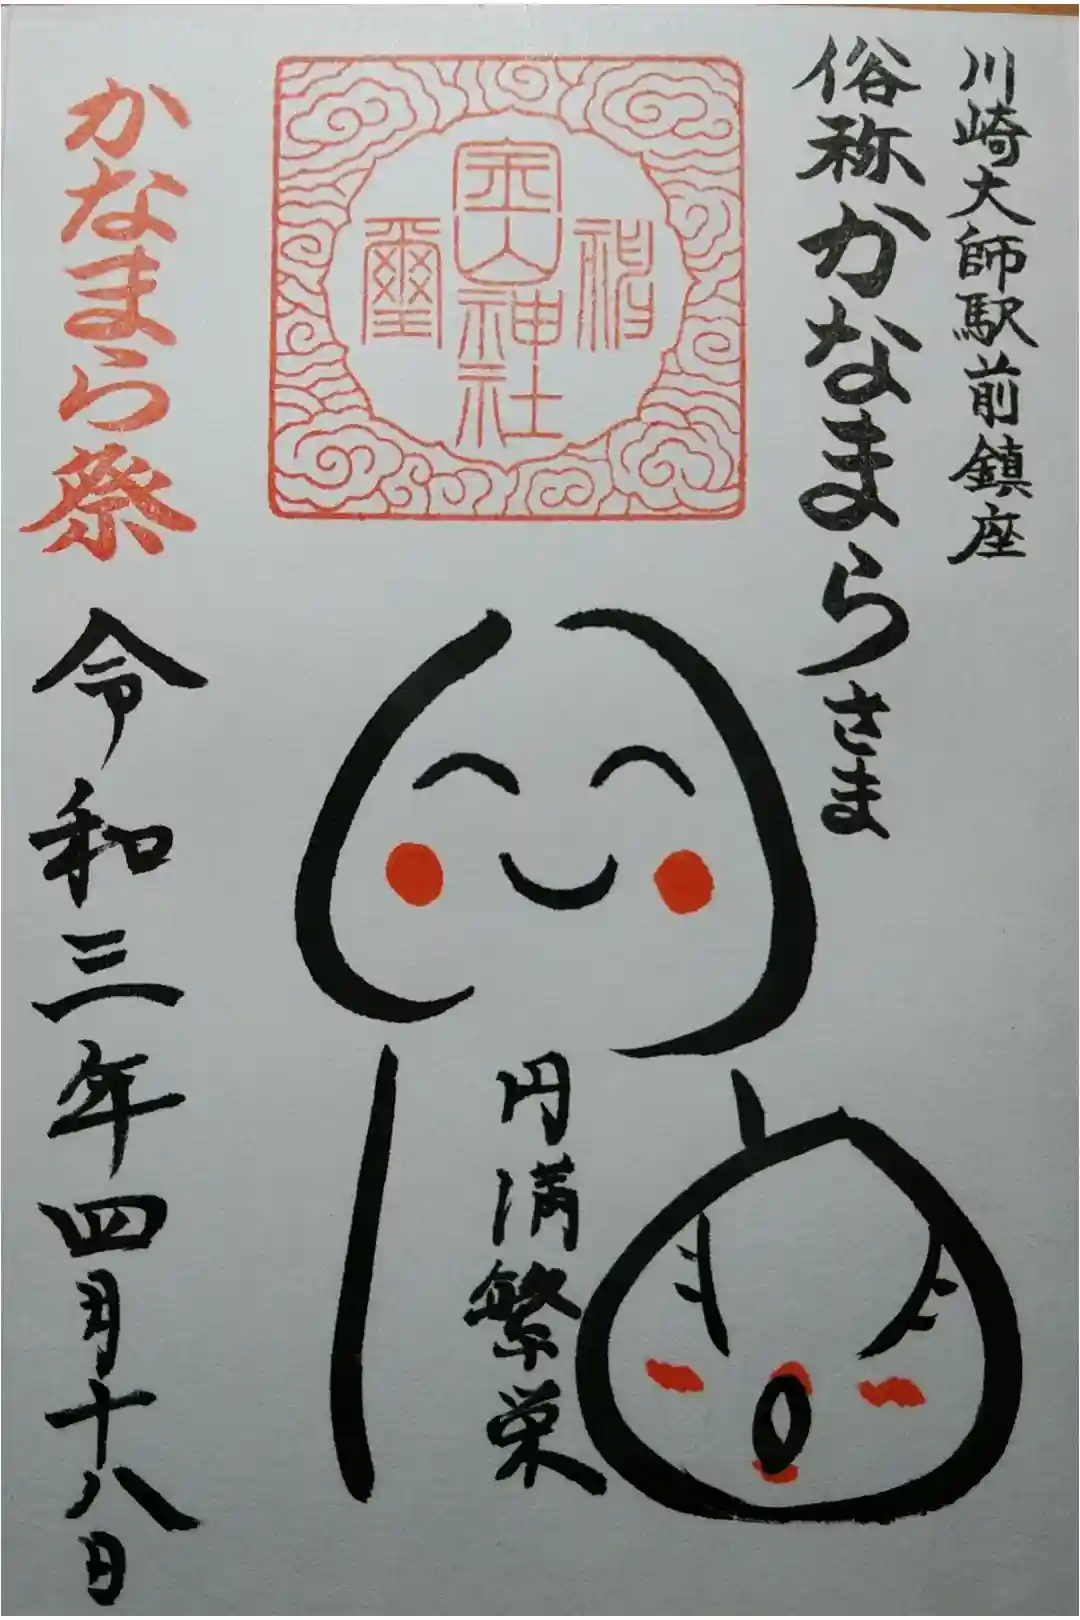 川崎大師駅前鎮座
俗称かなまらさま
金山神社
璽
円満繁栄
かなまら祭
令和三年四月十八日